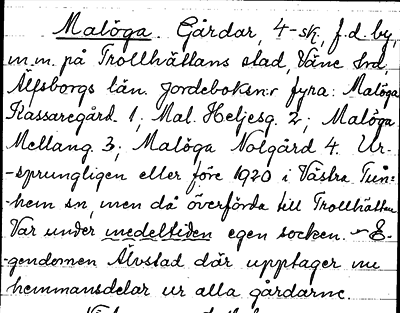 Malöga. Gårdar, 4-sk, f.d. by,
m.m. på Trollhättans stad, Väne hrd,
Älfsborgs län. Jordeboksnr fyra: Malöga
Kassaregård. 1; Mal. Heljesg. 2; Malöga
Mellang. 3; Malöga Nolgård 4. Ur-
-sprungligen eller före 1920 i Västra Tun=
-hem sn, men då överförda till Trollhättan
Var under medeltiden egen socken. - E-
-gendomen Älvstad där upptager nu
hemmansdelar ur alla gårdarne.